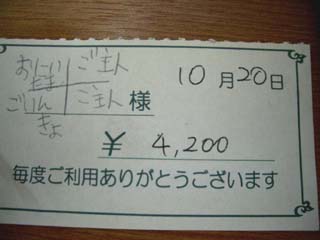 おにい ご主人
たま
ごいん ご主人
きょ
様
10月20日
¥ 4,200
毎度ご利用ありがとうございます